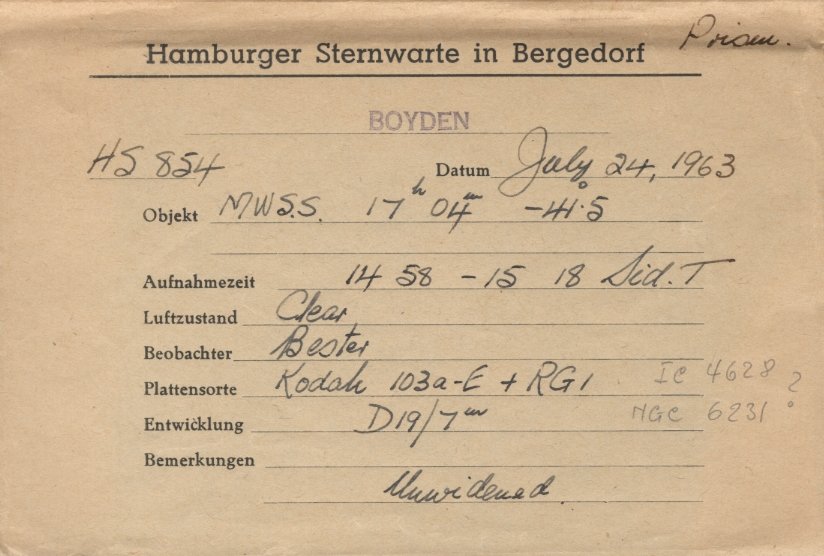 Prism.
Hamburger Sternwarte in Bergedorf
BOYDEN
HS 854 Datum July 24, 1963
Objekt MWS.S. 17h 04m -41°.5
Aufnahmezeit 14 58 - 15 18 Sid. T
Luftzustand Clear
Beobachter Bester
Plattensorte Kodak 103a-E + RG1 IC 4628 ?
Entwicklung D19/7m NGC 6231
Bemerkungen
Unwidened